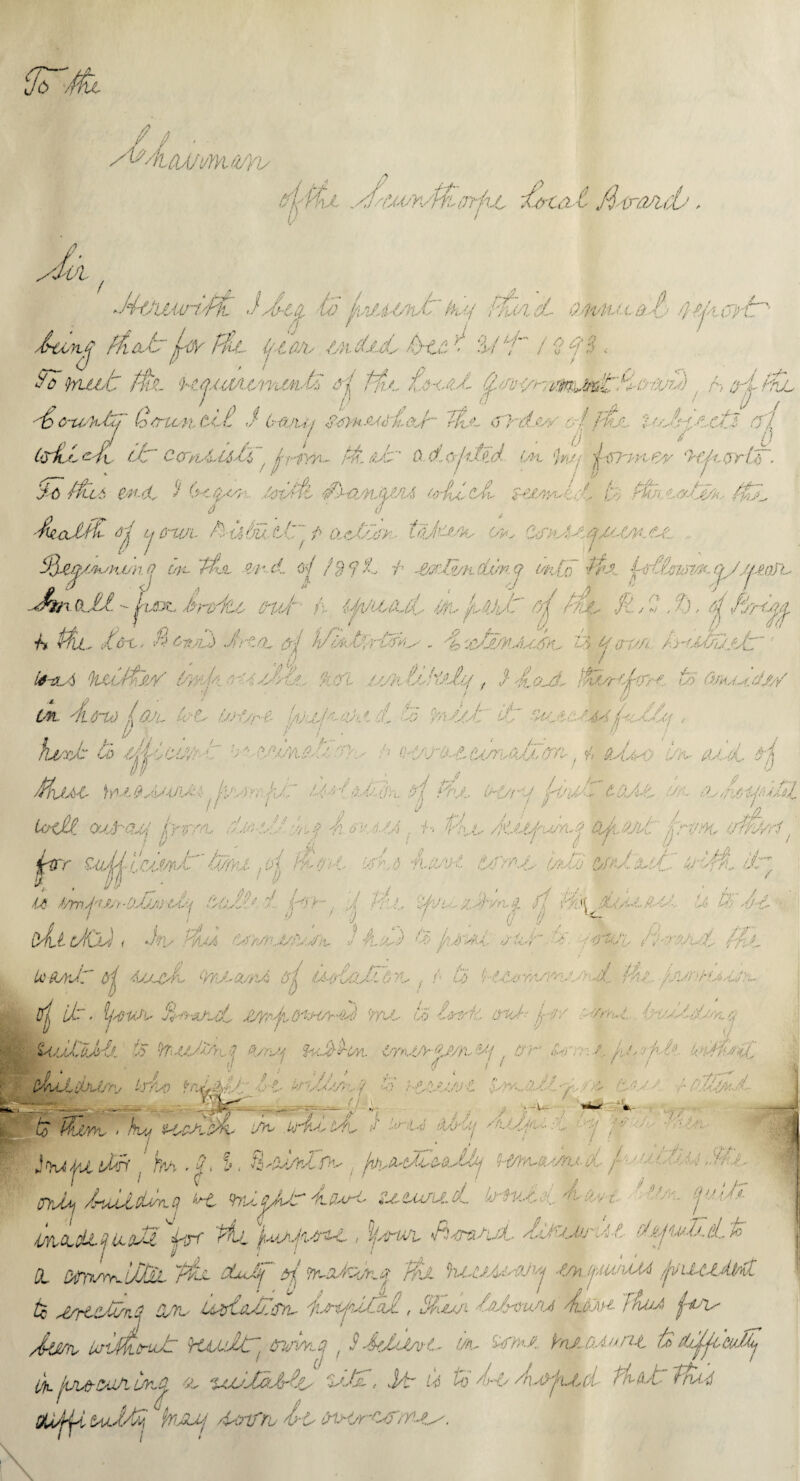 To the
Chairman
of the Scunthorpe Local Board.
Sir,
Herewith I beg to present my third annual report
being that for the year ended Decr 31st 1893.
To meet the requirements of the Local Government Board, & of the
County Council I vary somewhat the order of the subjects of
which it consists, from that adopted in my former reports.
To this end I begin with dangers which seemed to threaten the
health of your District & action taken in consequence.
Beginning in the end of 1892 & extending into the following year
Small-pox broke out & spread in part of the R.S.D. of Brigg
& the Loc. Board Area of Winterton. Its extension to your District
was neither impossible nor unlikely, I had therefore to consider
in how far we were prepared to meet it successfully,
next to efficient vaccination & revaccination, & also in aid of
these measures, prompt isolation of the very first case in a hospital
well away from dwelling houses, & the keeping apart from others,
for sufficient time, of those who have come into contact with it,
is imperatively called for, if the spreading of this disease is to be
checked. In this connexion I had to point out to your Board the
want of such means of isolation, & to recommend the provision
of it. Your Board empowered me to look out for some building
suitable to meeting any sudden emergency, or some people without
children who might be willing to receive small-pox cases & attend
to them. My search in which I was ably helped by your then
Inspector, Mr. J. T. Bainton, practically remained fruitless. The
only building we might have secured would have been quite
inadequate for the purpose. Your Board likewise deputed to
a committee the duty of making the necessary enquiries precedent
to erecting an isolation hospital. Their labours have thus far
been without result, owing, I believe in some measure to difficulty
in procuring a suitable site. It is to be hoped that this
difficulty may soon be overcome.